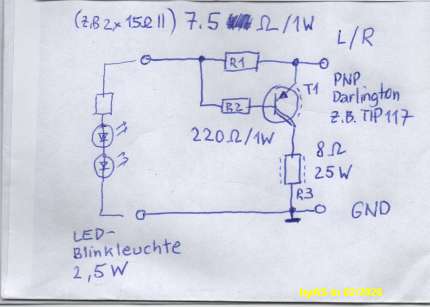 (z.B 2x 15Ω II) 7.5 Ω/1W
L/R
R1
T1
PNP
Darlington
z.B. TIP 117
R2
220Ω/1W
8Ω
25W
R3
GND
LED-
Blinkleuchte
2,5W